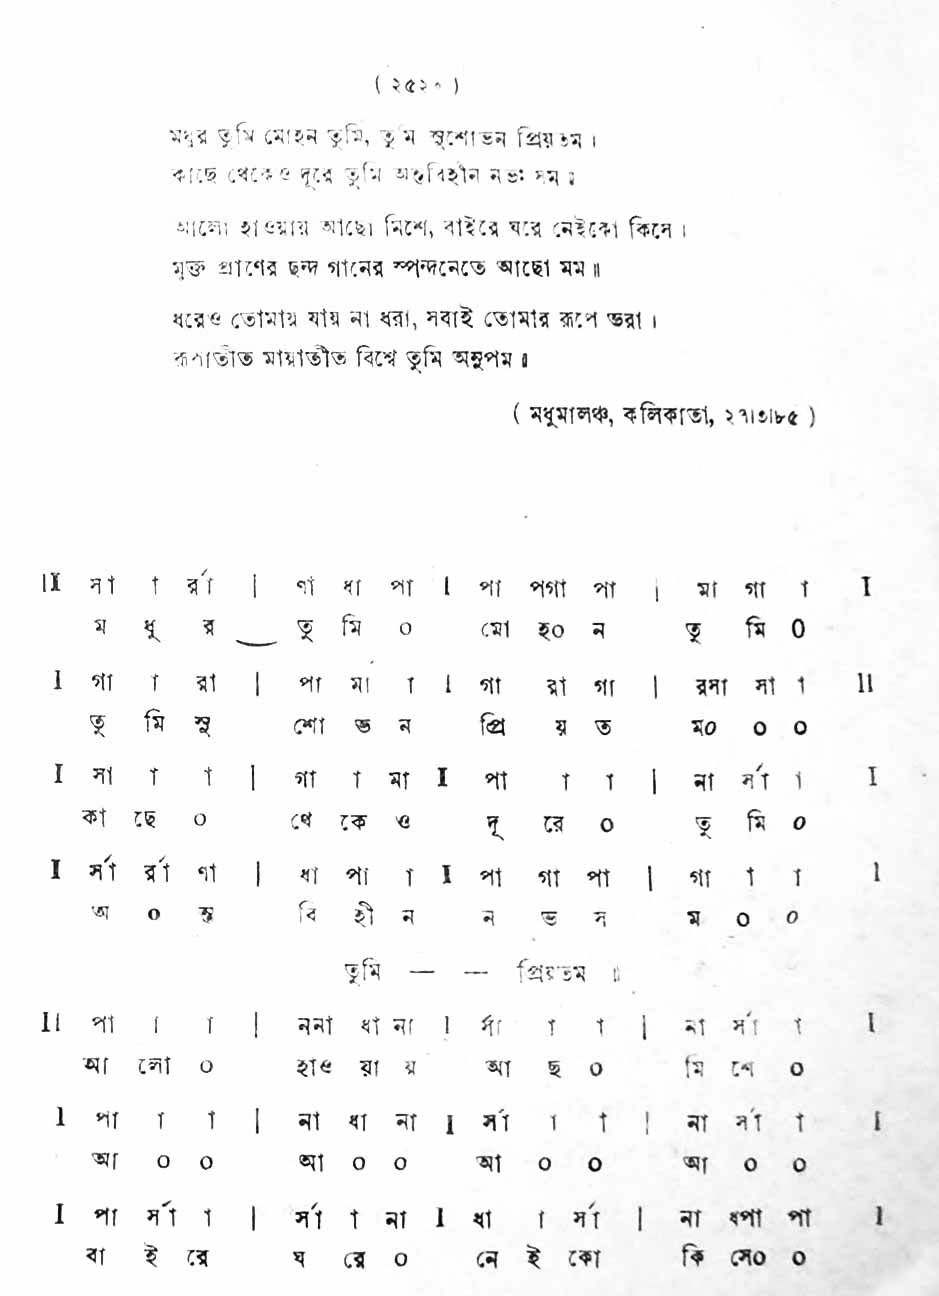 ( ২৫২০ )
মধুর তুমি মোহন তুমি, তুমি সুশোভন প্রিয়তম ।
কাছে থেকেও দূরে তুমি অন্তবিহীন নভঃ সম ॥
আলো হাওয়ায় আছো মিশে, বাইরে ঘরে নেইকো কিসে ।
মুক্ত প্রাণের ছন্দ গানের স্পন্দনেতে আছো মম ॥
ধরেও তোমায় যায় না ধরা, সবাই তোমার রূপে ভরা ।
রূপাতীত মায়াতীত বিশ্বে তুমি অনুপম ॥
( মধুমালঞ্চ, কলিকাতা, ২৭।৩।৮৫ )
II সা া র্রা | ণা ধা পা I পা পগা পা | মা গা া I
ম ধু র তু মি ০ মো হ০ ন তু মি ০
I গা া রা | পা মা া I গা রা গা | রসা সা া II
তু মি সু শো ভ ন প্রি য় ত ম০ ০ ০
I সা া া | গা া মা I পা া া | না র্সা া I
কা ছে ০ থে কে ও দূ রে ০ তু মি ০
I র্সা র্রা ণা | ধা পা া I পা গা পা | গা া া I
অ ০ ন্ত বি হী ন ন ভ স ম ০ ০
তুমি — — প্রিয়তম ॥
II পা া া | ননা ধা না I র্সা া া | না র্সা া I
আ লো ০ হাও য়া য় আ ছ ০ মি শে ০
I পা া া | না ধা না I র্সা া া | না র্সা া I
আ ০ ০ আ ০ ০ আ ০ ০ আ ০ ০
I পা র্সা া | র্সা া না I ধা া র্সা | না ধপা পা I
বা ই রে ঘ রে ০ নে ই কো কি সে০ ০